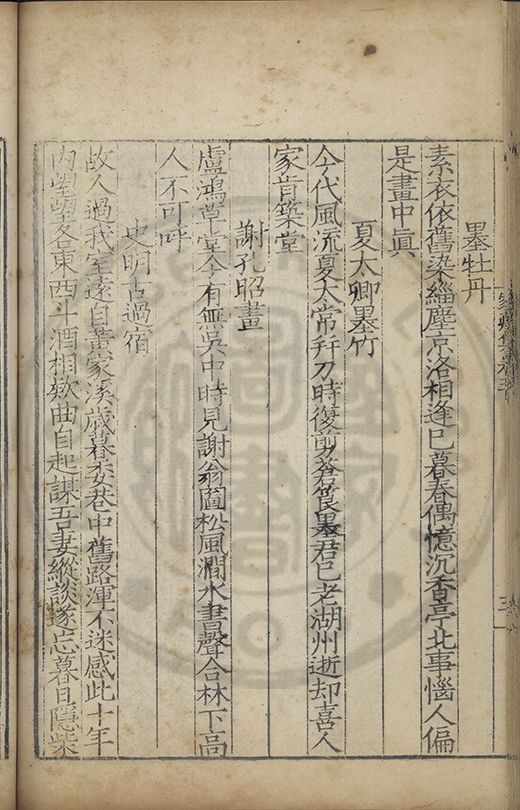 墨牡丹
素衣依舊染緇塵京洛相逢已暮春偶憶沉香亭北事惱人偏
是畫中眞
夏太卿墨竹
今代風流夏太常幷刀時復剪蒼筤墨君已老湖州逝却喜人
家肯築堂
謝孔昭畫
盧鴻草堂今有無吳中時見謝翁圖松風澗水書聲合林下高
人不可呼
史明古過宿
故人過我室遠自黃家溪歲暮委巷中舊路渾不迷感此十年
內望望各東西斗酒相欵曲自起謀吾妻縱談遂忘暮且隱柴